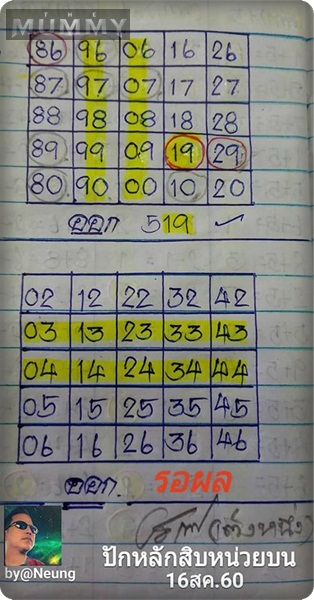 MUMMY
86 96 06 16 26
87 97 07 17 27
88 98 08 18 28
89 99 09 19 29
80 90 00 10 20
ออก 519 ✓
02 12 22 32 42
03 13 23 33 43
04 14 24 34 44
05 15 25 35 45
06 16 26 36 46
ออก. รอผล
by@Neung
ปักหลักสิบหน่วยบน
16สค.60